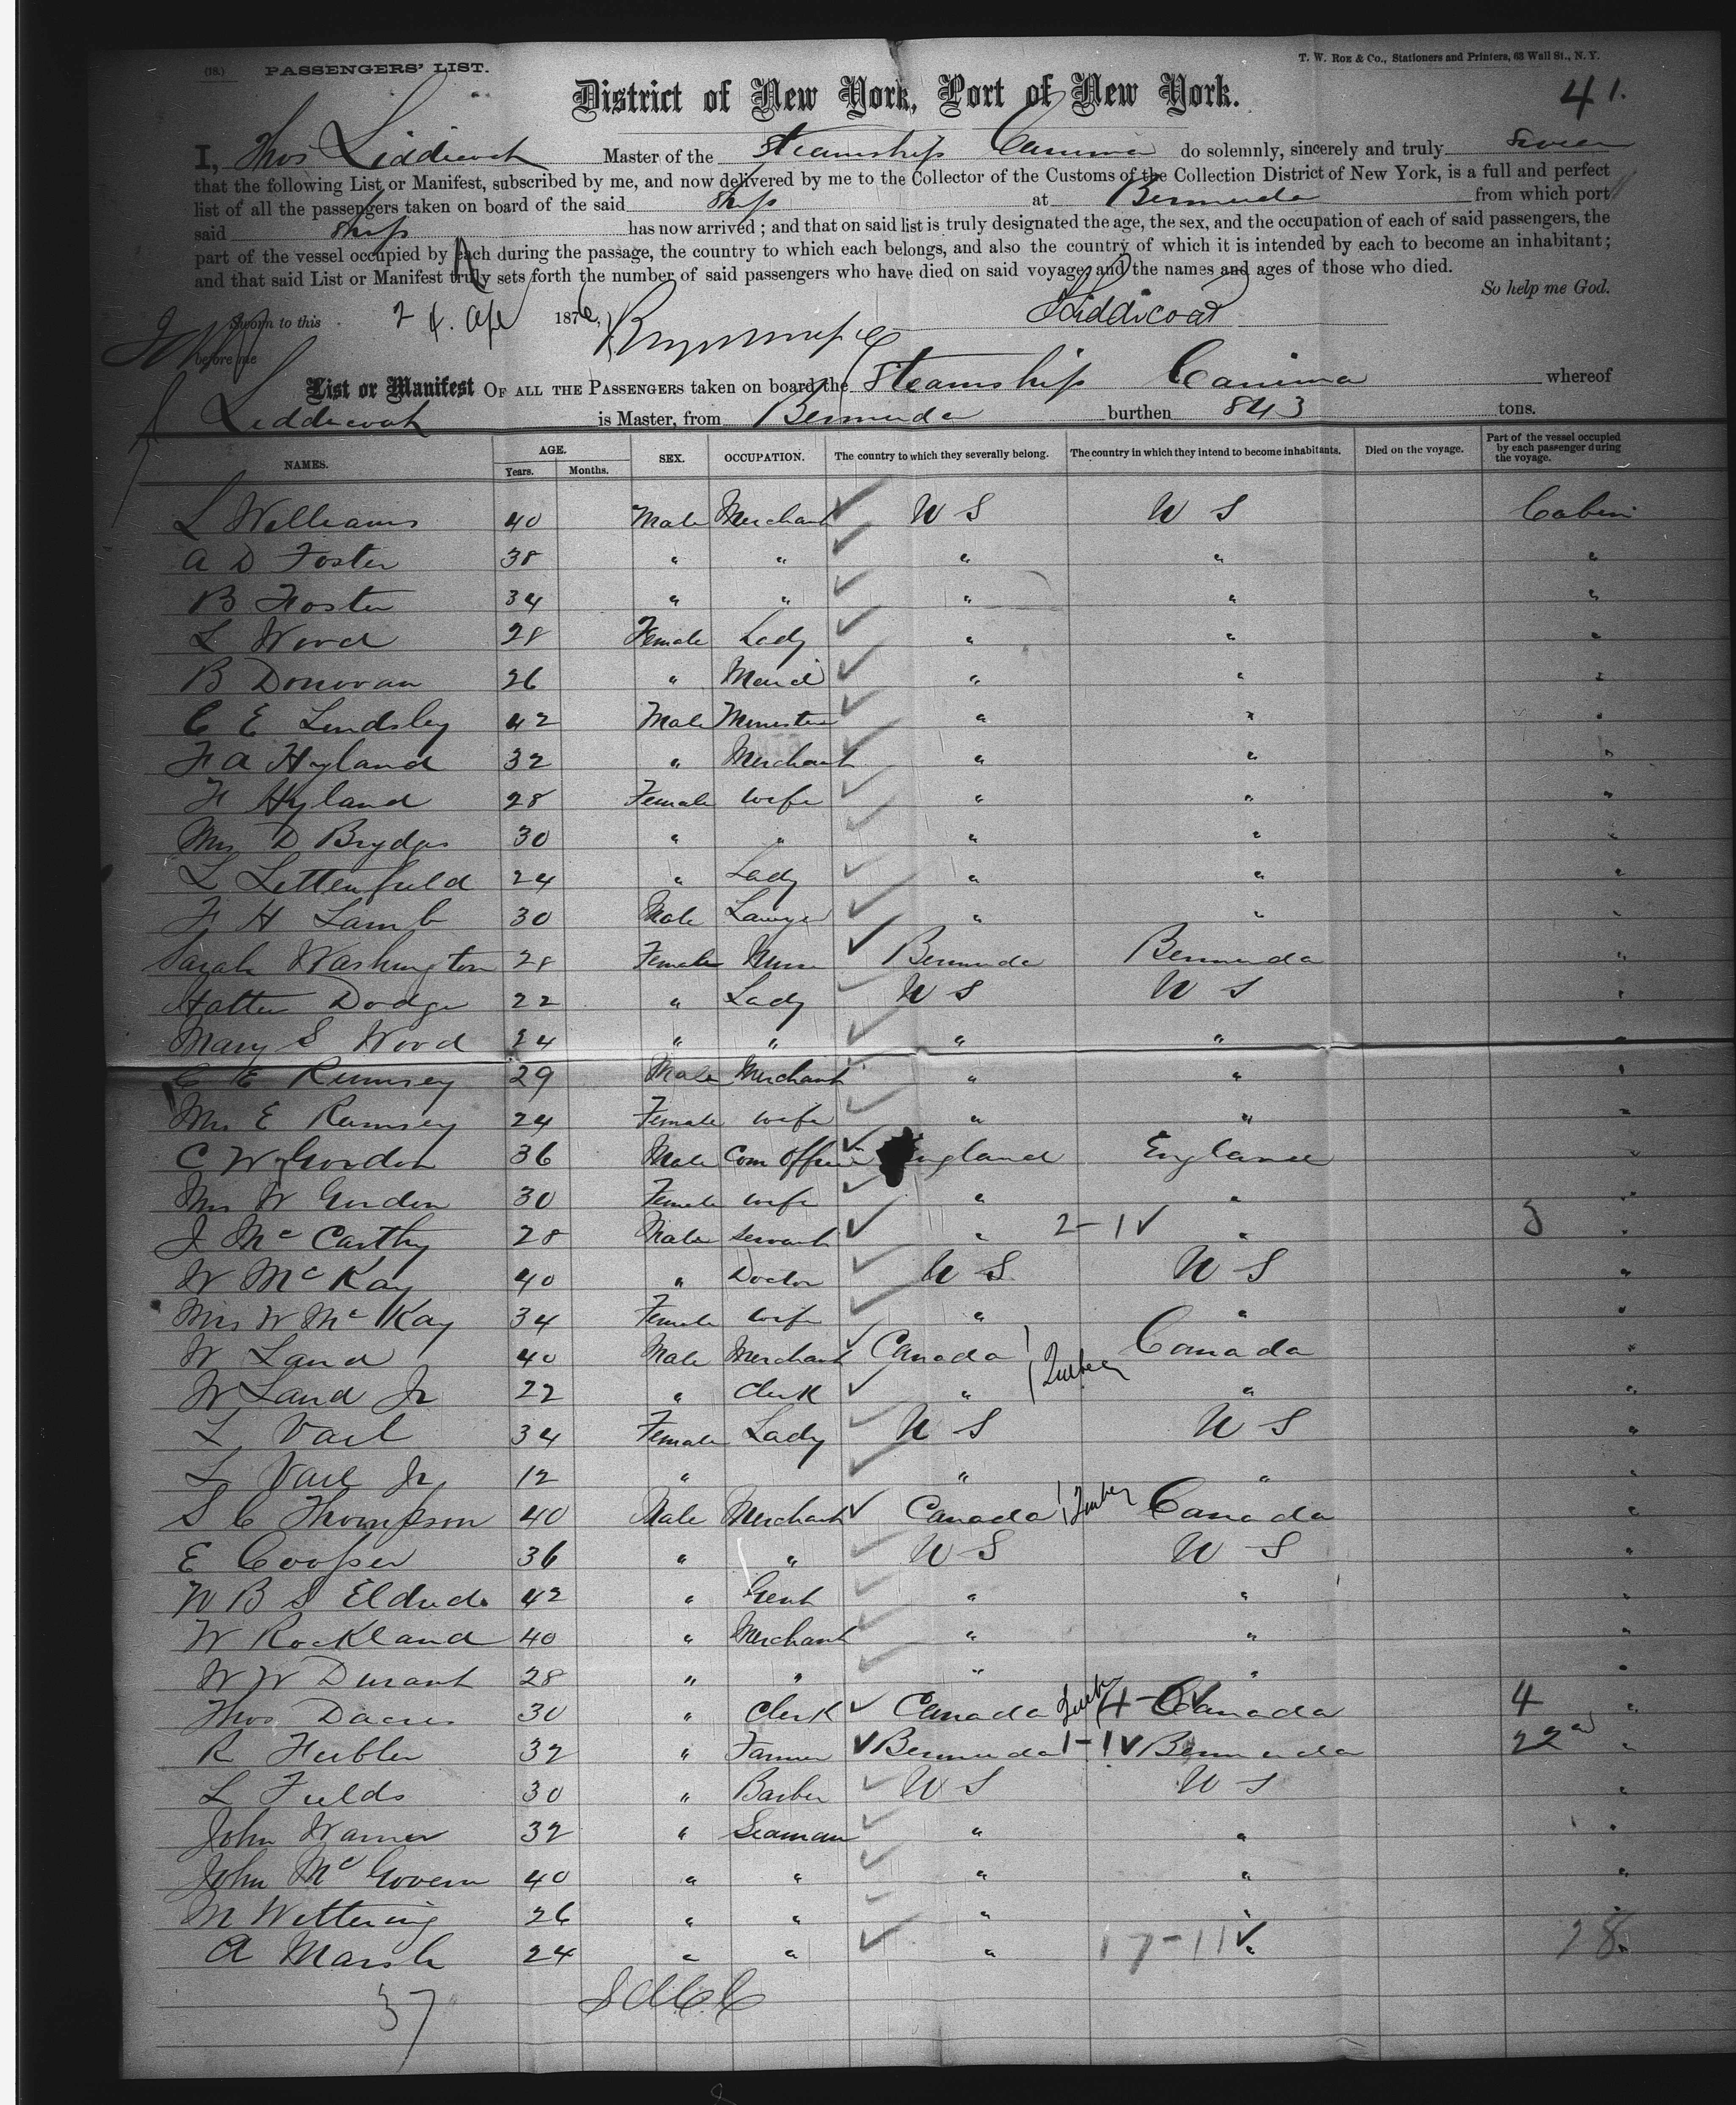 (18.) PASSENGERS' LIST. T. W. Roe & Co., Stationers and Printers, 63 Wall St., N. Y.
District of New York, Port of New York. 41.
I, Thos Liddicoat Master of the Steamship Canima do solemnly, sincerely and truly swear
that the following List or Manifest, subscribed by me, and now delivered by me to the Collector of the Customs of the Collection District of New York, is a full and perfect
list of all the passengers taken on board of the said Ship at Bermuda from which port
said Ship has now arrived; and that on said list is truly designated the age, the sex, and the occupation of each of said passengers, the
part of the vessel occupied by each during the passage, the country to which each belongs, and also the country of which it is intended by each to become an inhabitant;
and that said List or Manifest truly sets forth the number of said passengers who have died on said voyage, and the names and ages of those who died.
So help me God.
Sworn to this 24. Apl 1876, Liddicoat
before me
List or Manifest OF ALL THE PASSENGERS taken on board the Steamship Canima whereof
Liddicoat is Master, from Bermuda burthen 843 tons.
NAMES. AGE. Years. Months. SEX. OCCUPATION. The country to which they severally belong. The country in which they intend to become inhabitants. Died on the voyage. Part of the vessel occupied by each passenger during the voyage.
L Williams 40 Male Merchant U S U S Cabin
A D Foster 38 " " " " "
B Foster 34 " " " " "
L Wood 28 Female Lady " " "
B Donovan 26 " Maid " " "
C E Lindsley 42 Male Minister " " "
F A Hyland 32 " Merchant " " "
F Hyland 28 Female Wife " " "
Mrs D Brydges 30 " " " " "
L Lettenfield 24 " Lady " " "
F H Lamb 30 Male Lawyer " " "
Sarah Washington 28 Female Nurse Bermuda Bermuda "
Hattie Dodge 22 " Lady U S U S "
Mary S Wood 24 " " " " "
C E Rumsey 29 Male Merchant " " "
Mrs E Rumsey 24 Female Wife " " "
C W Gordon 36 Male Com Officer England England "
Mrs W Gordon 30 Female Wife " " "
J McCarthy 28 Male Servant " 2-1 " 3 "
W McKay 40 " Doctor U S U S "
Mrs W McKay 34 Female Wife " " "
W Land 40 Male Merchant Canada Quebec Canada "
W Land Jr 22 " Clerk " " "
L Vail 34 Female Lady U S U S "
L Vail Jr 12 " " " "
S C Thompson 40 Male Merchant Canada Quebec Canada "
E Cooper 36 " " U S U S "
W B S 42 " Gent " " "
W Rockland 40 " Merchant " " "
W W Durant 28 " " " " "
Thos Dacres 30 " Clerk Canada 4-0 Canada 4 "
R 32 " Farmer Bermuda 1-1 Bermuda 22 "
L Fields 30 " Barber U S U S "
John Warner 32 " Seaman " " "
John McGovern 40 " " " " "
M Wettering 26 " " " " "
A Marsh 24 " " " 17-11 " 28 "
37